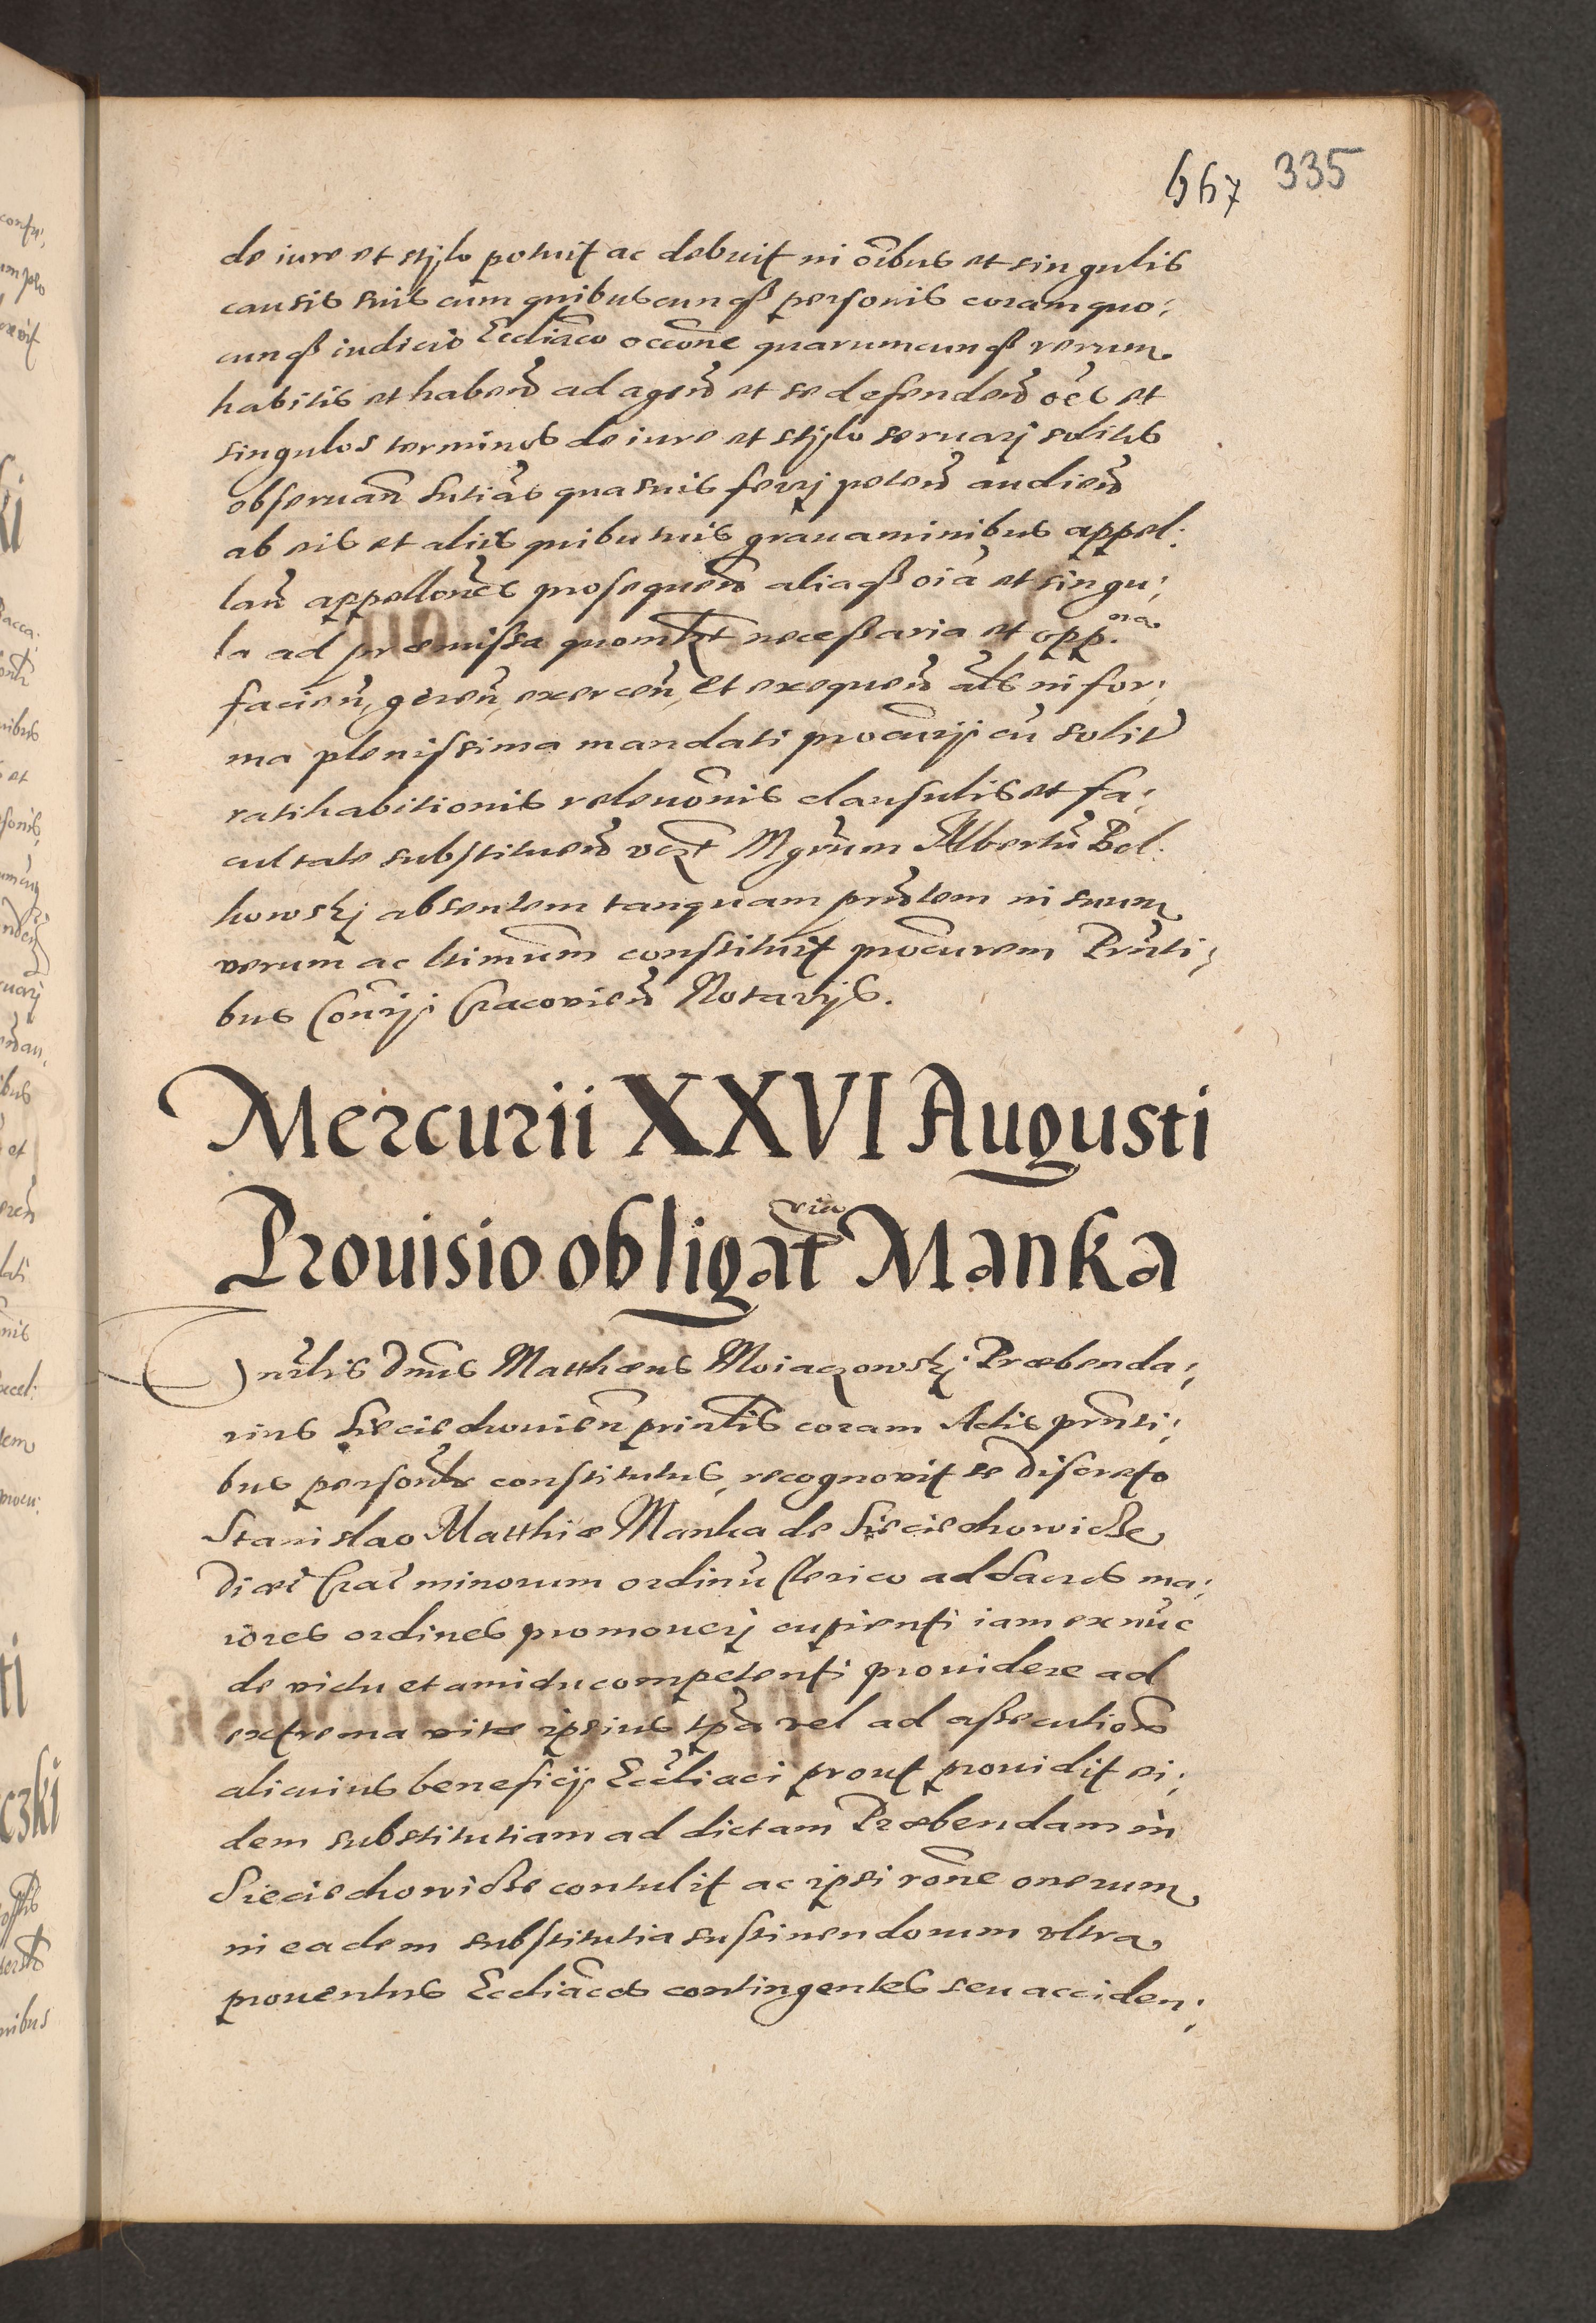 667 335
de iure et stylo potuit ac debuit in oĩbus et singulis
causis suis cum quibuscunqȝ personis coram quo:
cunqȝ iudicio Eccliãco occõne quarumcunqȝ rerum
habitis et habeñ ad ageñ et se defendeñ oẽs et
singulos terminos de iure et stylo seruarj solitos
obseruañ Sntiãs quasuis ferrj peteñ audieñ
ab eis et alijs quibusuis grauaminibus appel:
lañ appellonẽs prosequeñ aliaqȝ oiã et singu:
la ad præmissa quomłt necessaria et opp.na
facieñ, gereñ, exerceñ, et exequeñ als̃ in for:
ma plenissima mandati procurij cũ solit̃
ratihabitionis releuõnis clausulis et fa:
cultate substitueñ vczt Mgrũm Albertũ Bel:
howskj absentem tanquam pnt̃em in suum
verum ac ltimũm constituit procũrem Pnt̃i:
bus Cons̃rij Cracovieñ Notarijs.
Mercurii XXVI Augusti
Prouisio obligatria Manka
Hnrlis Dnũs Matthæus Moiaczowskj Præbenda:
rius Sieciechouieñ prinłis coram Actis pnt̃i:
bus personłr constitutus, recognovit se discreto
Stanislao Matthiæ Manka de Sieciechowicze
Diæc̃ Crac̃ minorum ordinũ Clerico ad Sacros ma:
iores ordines promouerj cupienti iam ex nũc
de victu et amictu competenti prouidere ad
extrema vitæ ipsius tpã vel ad assecutionẽ
alicuius beneficij Eccl̃iaci prout prouidit ei:
dem substitutiam ad dictam Præbendam in
Sieciechowicze contulit ac ipsi rõne onerum
in eadem substitutia sustinendorum vltra
prouentus Eccliãcos contingentes seu acciden: